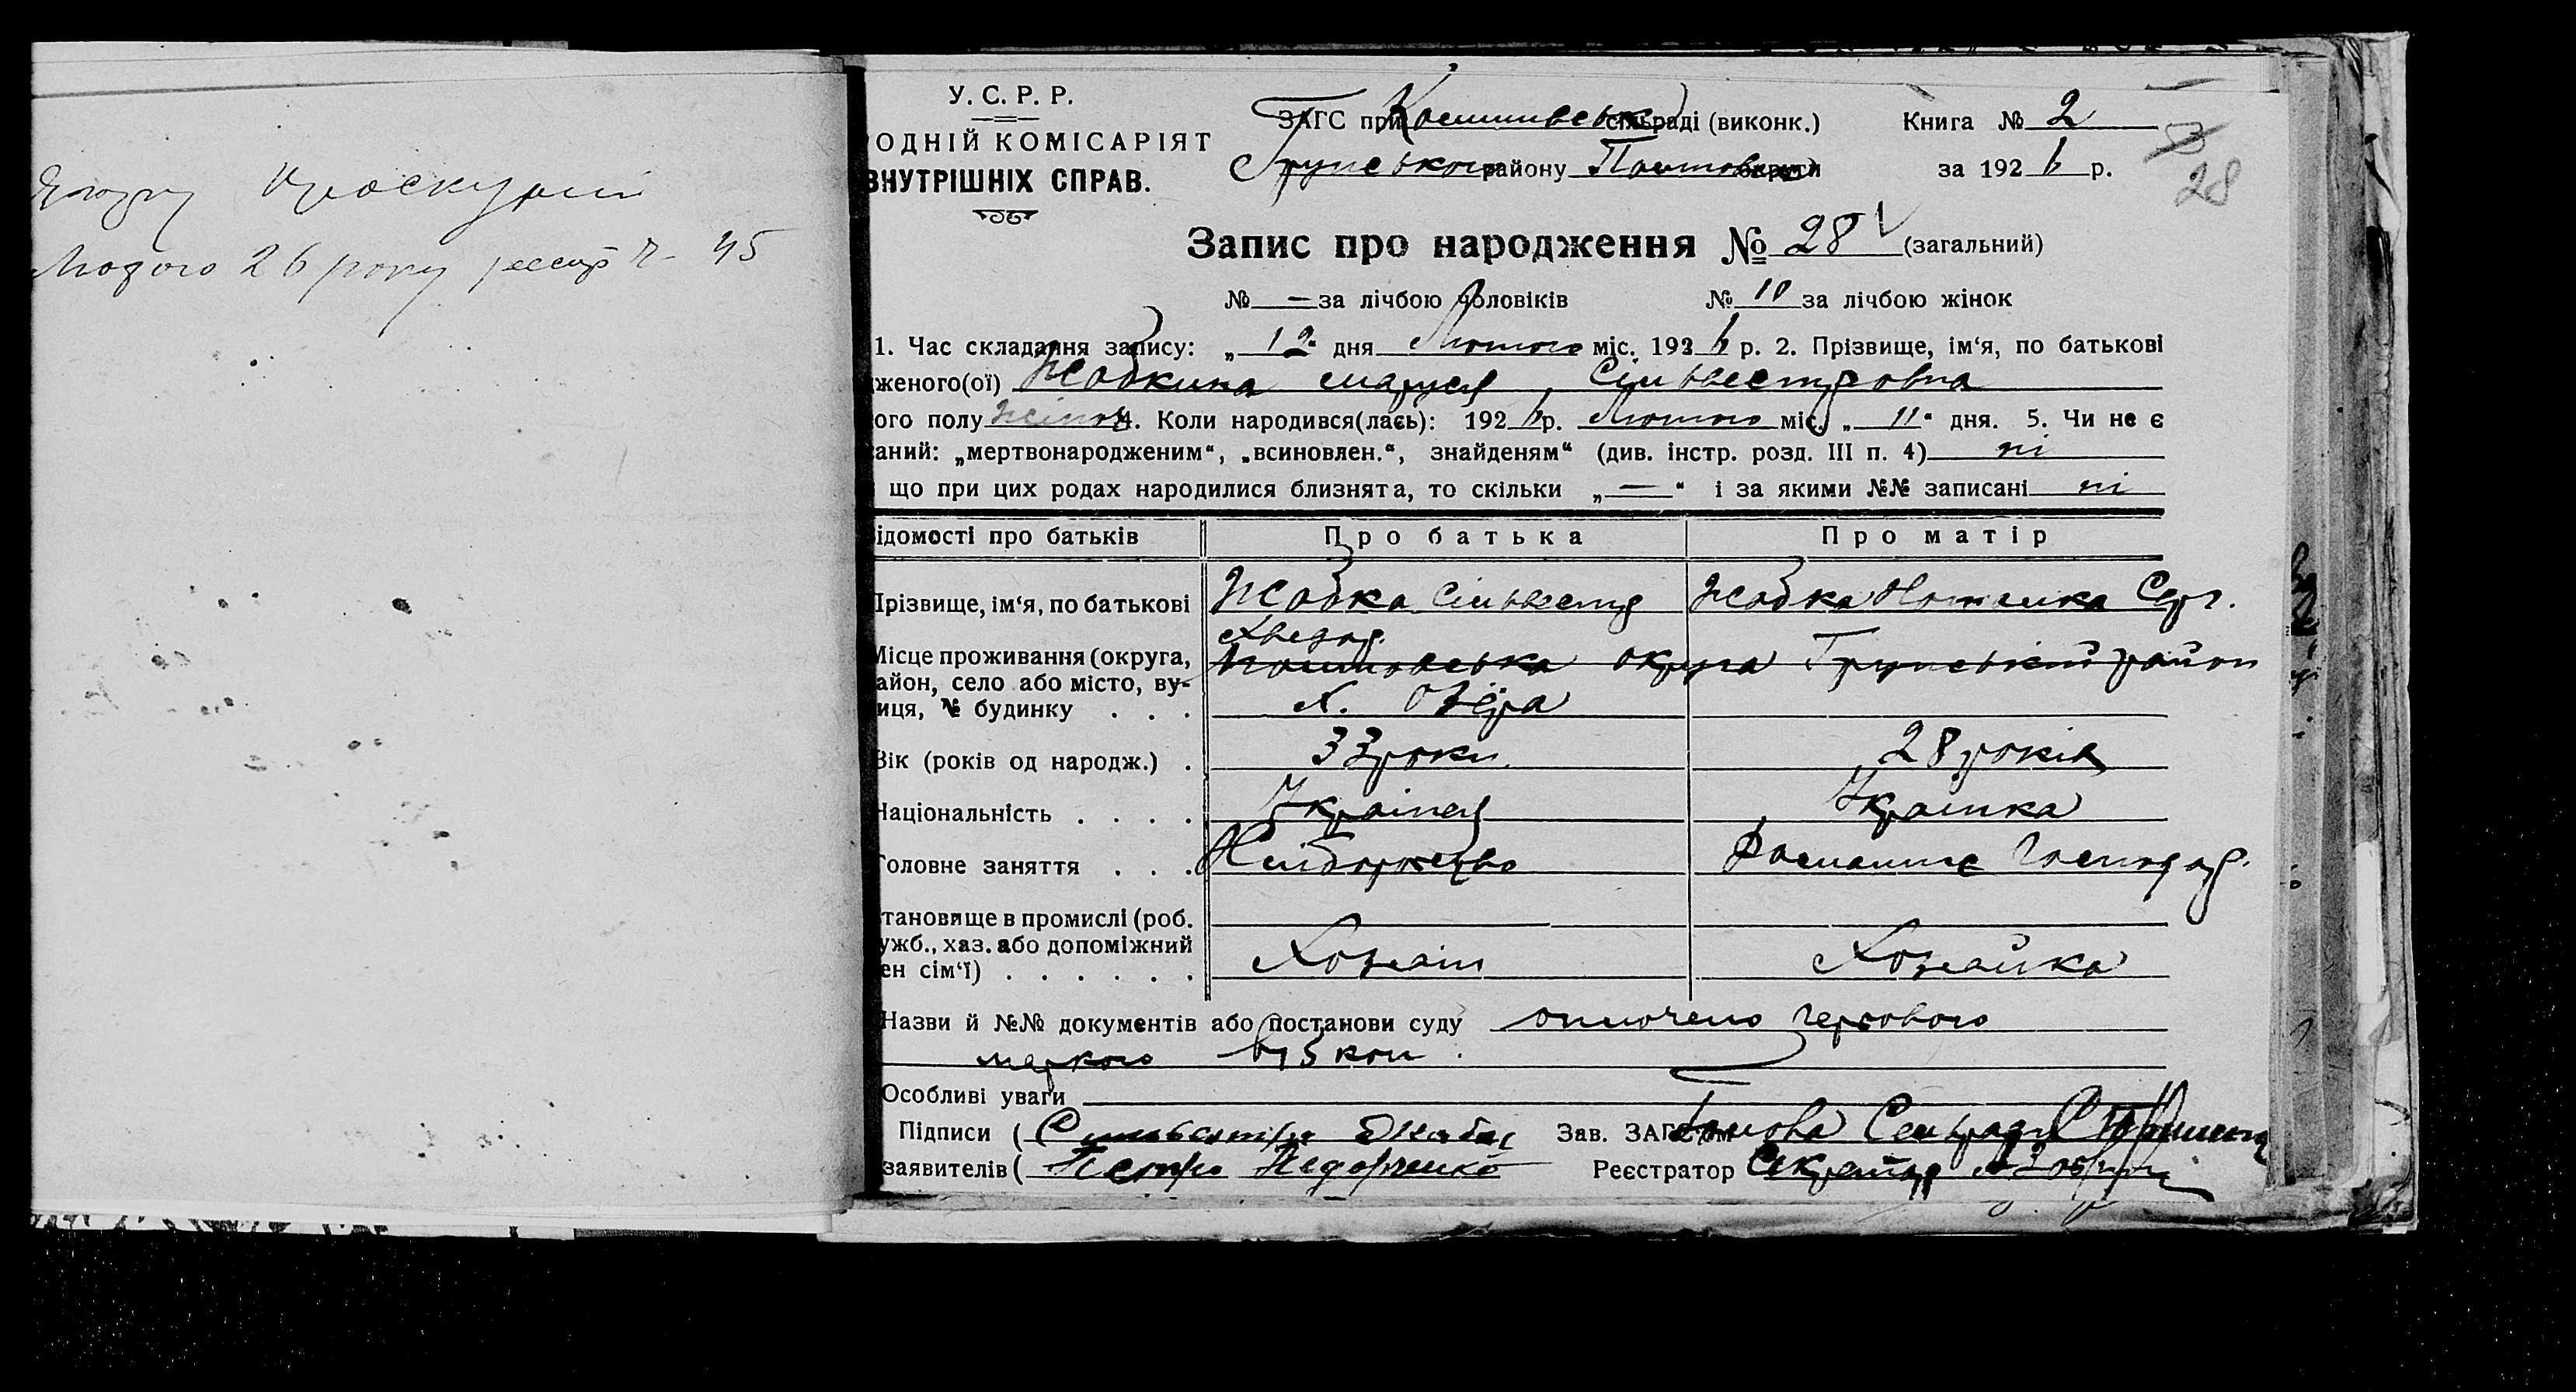 Лютого 26 року реєстр ч- 45
У. С. Р. Р.
ОДНІЙ КОМІСАРІЯТ
ВНУТРІШНІХ СПРАВ.
ЗАГС при сільраді (виконк.) Книга № 2
району округи за 1926 р.
28
Запис про народження № 28 (загальний)
№ — за лічбою чоловіків № 10 за лічбою жінок
1. Час складання запису: „12“ дня Лютого міс. 1926 р. 2. Прізвище, ім‘я, по батькові
женого(ої) Жабкина Маруся Сільвестровна
ого полу жіноч 4. Коли народився(лась): 1926 р. Лютого міс. „11“ дня. 5. Чи не є
аний: „мертвонародженим“, „всиновлен.“, знайденям“ (див. інстр. розд. III п. 4) ні
що при цих родах народилися близнята, то скільки „—“ і за якими №№ записані ні
ідомості про батьків Про батька Про матір
Прізвище, ім‘я, по батькові Жабка Сільвестр Жабка Наталка Серг.
Хведор.
Місце проживання (округа, округа район
айон, село або місто, ву-
иця, № будинку . . . х. Озёра
Вік (років од народж.) . 33 роки 28 років
Національність . . . . Українец Українка
Головне заняття . . . Хліборобство Домашнє Господар.
тановище в промислі (роб.
ужб., хаз. або допоміжний
ен сім‘ї) . . . . . . Хозяін Хозяйка
Назви й №№ документів або постанови суду оплочено гербового
маркою в 15 коп.
Особливі уваги
Підписи ( Сильвестр Жабка Зав. ЗАГС‘ом Голова Сельради
заявителів ( Петро Федорченко Реєстратор Секретар